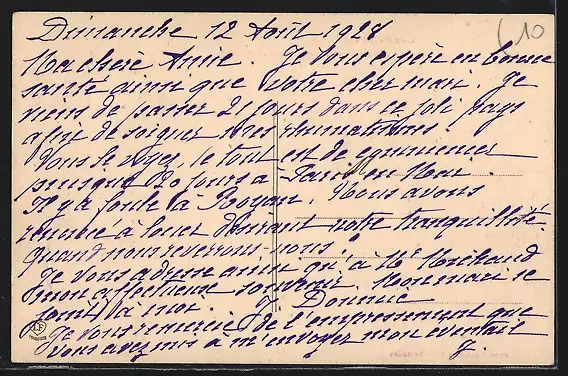 Dimanche 12 Août 1928
Ma chère Amie. Je vous espère en bonne
santé ainsi que votre cher mari. Je
viens de passer 21 jours dans ce joli pays
afin de soigner mes rhumatismes.
Vous le voyez, le tout est de commencer
puisque 20 jours à en Mai.
Il y a foule à Royan. Nous avons
à louer devant votre tranquillité.
Quand nous reverrons-nous?
Je vous adresse ainsi qu'à Mr Michaud
mon affectueux souvenir. Mon mari se
joint à moi. Y. Donnue
Je vous remercie de l'empressement que
vous avez mis à m'envoyer mon éventail
Y.
10